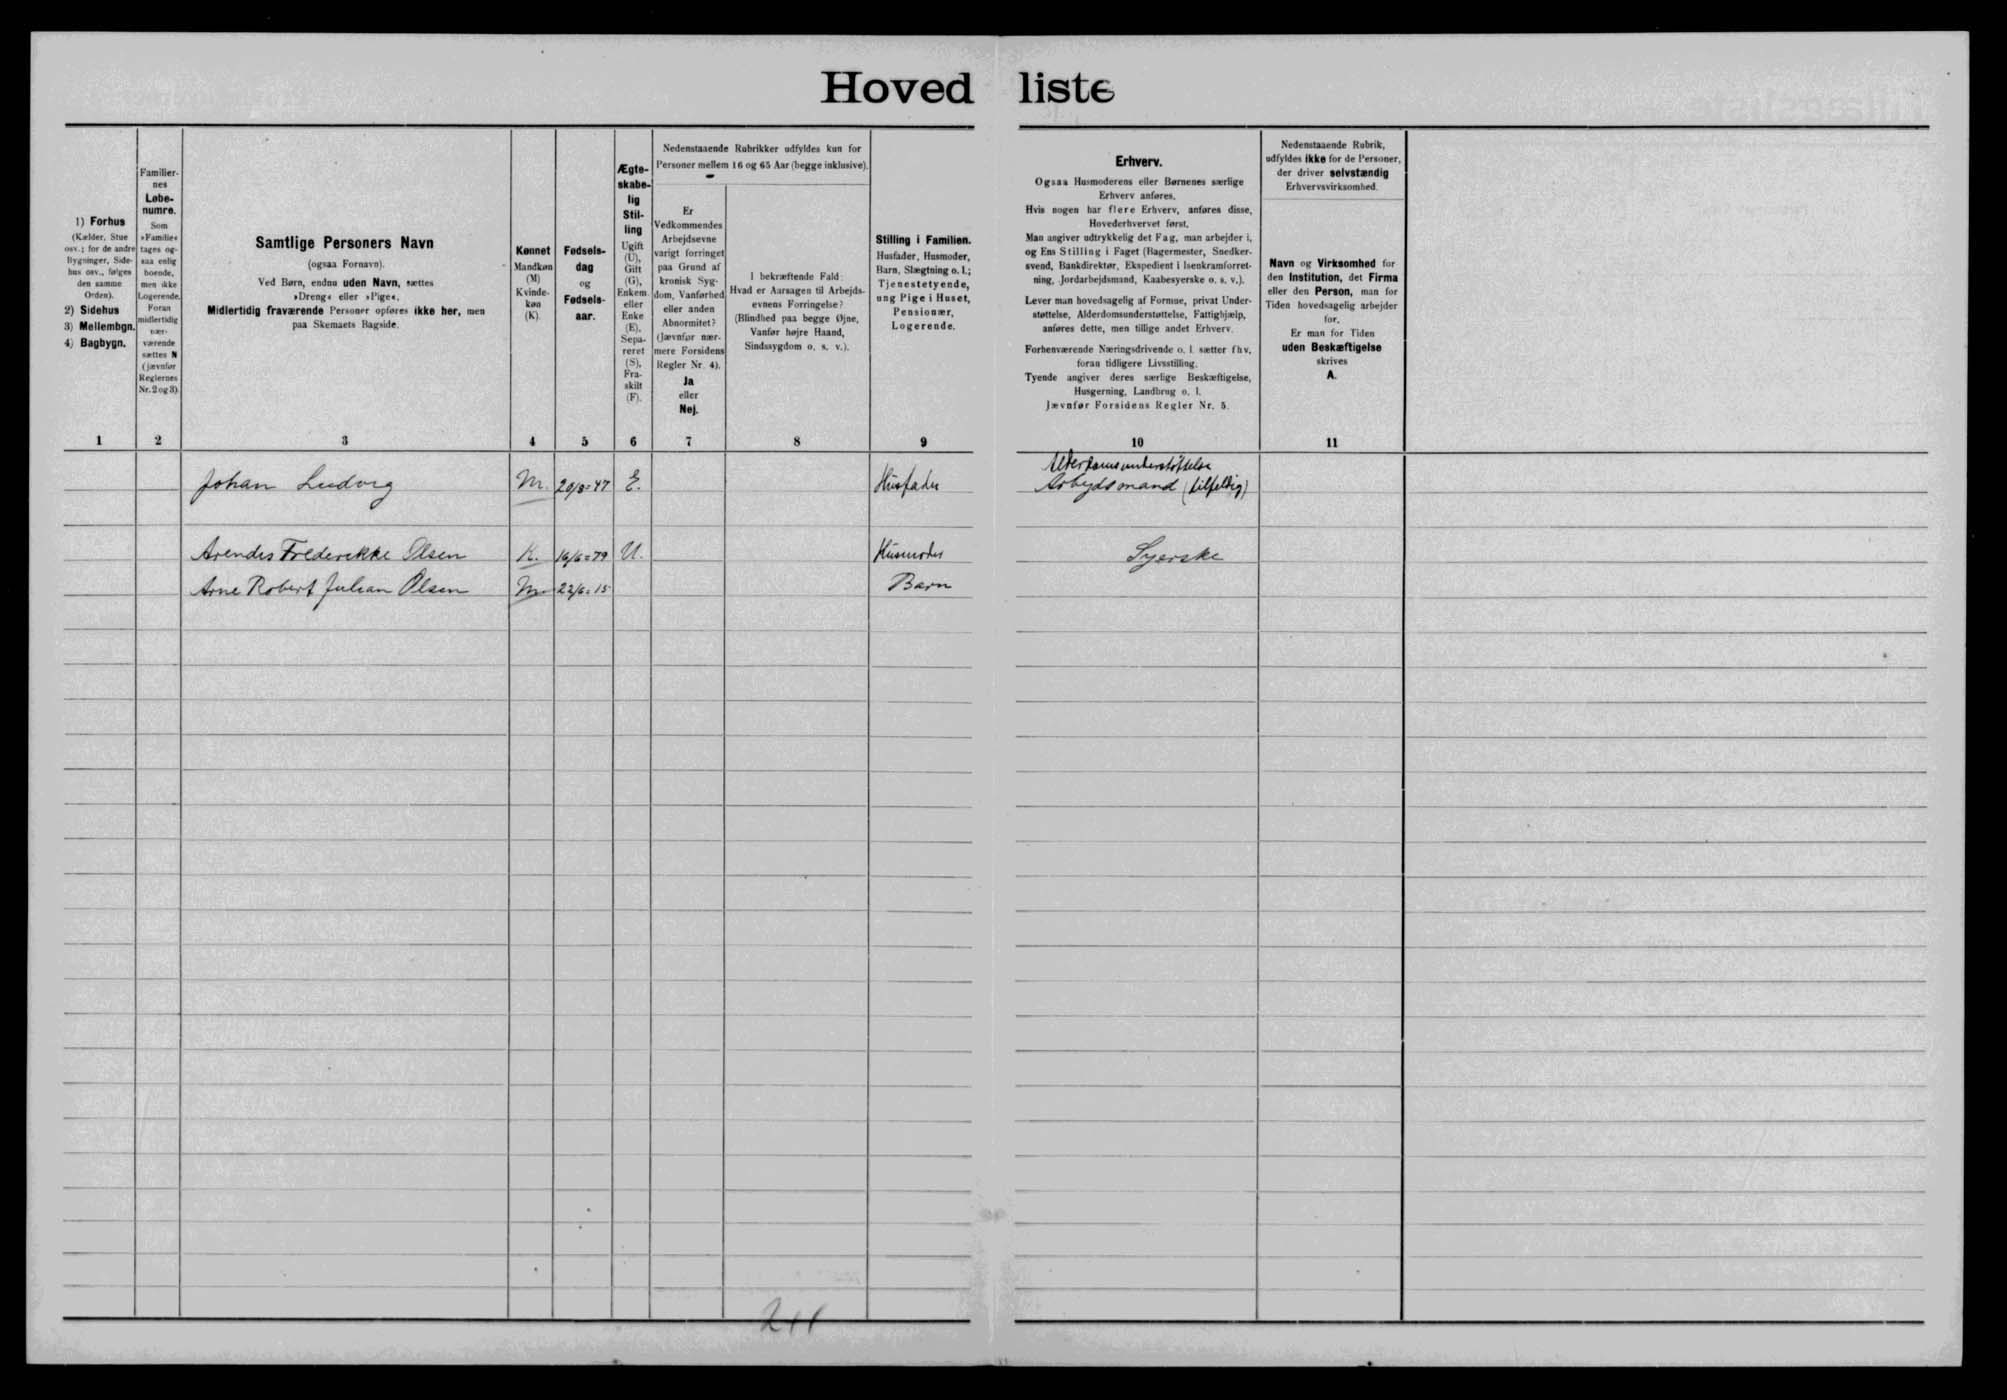 Hovedliste
1) Forhus
(Kælder, Stue
osv.; for de andre
Bygninger, Side-
hus osv., følges
den samme
Orden).
2) Sidehus
3) Mellembgn.
4) Bagbygn.
Familier-
nes
Løbe-
numre.
Som
»Familie«
tages og-
saa enlig
boende,
men ikke
Logerende.
Foran
midlertidig
nær-
værende
sættes N
(jævnfør
Reglernes
Nr. 2 og 3).
Samtlige Personers Navn
(ogsaa Fornavn).
Ved Børn, endnu uden Navn, sættes
»Dreng« eller »Pige«.
Midlertidig fraværende Personer opføres ikke her, men
paa Skemaets Bagside.
Kønnet
Mandkøn
(M)
Kvinde-
køn
(K).
Fødsels-
dag
og
Fødsels-
aar.
Ægte-
skabe-
lig
Stil-
ling
Ugift
(U),
Gift
(G),
Enkem.
eller
Enke
(E),
Sepa-
reret
(S),
Fra-
skilt
(F).
Nedenstaaende Rubrikker udfyldes kun for
Personer mellem 16 og 65 Aar (begge inklusive).
Er
Vedkommendes
Arbejdsevne
varigt forringet
paa Grund af
kronisk Syg-
dom, Vanførhed
eller anden
Abnormitet?
(Jævnfør nær-
mere Forsidens
Regler Nr. 4).
Ja
eller
Nej.
I bekræftende Fald:
Hvad er Aarsagen til Arbejds-
evnens Forringelse?
(Blindhed paa begge Øjne,
Vanfør højre Haand,
Sindssygdom o. s. v.).
Stilling i Familien.
Husfader, Husmoder,
Barn, Slægtning o. l.;
Tjenestetyende,
ung Pige i Huset,
Pensionær,
Logerende.
Erhverv.
Ogsaa Husmoderens eller Børnenes særlige
Erhverv anføres.
Hvis nogen har flere Erhverv, anføres disse,
Hovederhvervet først.
Man angiver udtrykkelig det Fag, man arbejder i,
og Ens Stilling i Faget (Bagermester, Snedker-
svend, Bankdirektør, Ekspedient i Isenkramforret-
ning, Jordarbejdsmand, Kaabesyerske o. s. v.).
Lever man hovedsagelig af Formue, privat Under-
støttelse, Alderdomsunderstøttelse, Fattighjælp,
anføres dette, men tillige andet Erhverv.
Forhenværende Næringsdrivende o. l. sætter fhv.
foran tidligere Livsstilling.
Tyende angiver deres særlige Beskæftigelse,
Husgerning, Landbrug o. l.
Jævnfør Forsidens Regler Nr. 5.
Nedenstaaende Rubrik,
udfyldes ikke for de Personer,
der driver selvstændig
Erhvervsvirksomhed.
Navn og Virksomhed for
den Institution, det Firma
eller den Person, man for
Tiden hovedsagelig arbejder
for.
Er man for Tiden
uden Beskæftigelse
skrives
A.
1 2 3 4 5 6 7 8 9 10 11
Alderdomsunderstøttelse
Johan Ludvig M. 20/8=47 E. Husfader Arbejdsmand (tilfeldig)
Arendis Frederekke Olsen K. 16/6=79 U. Husmoder Syerske
Arne Robert Julian Olsen M 22/6=15 Barn